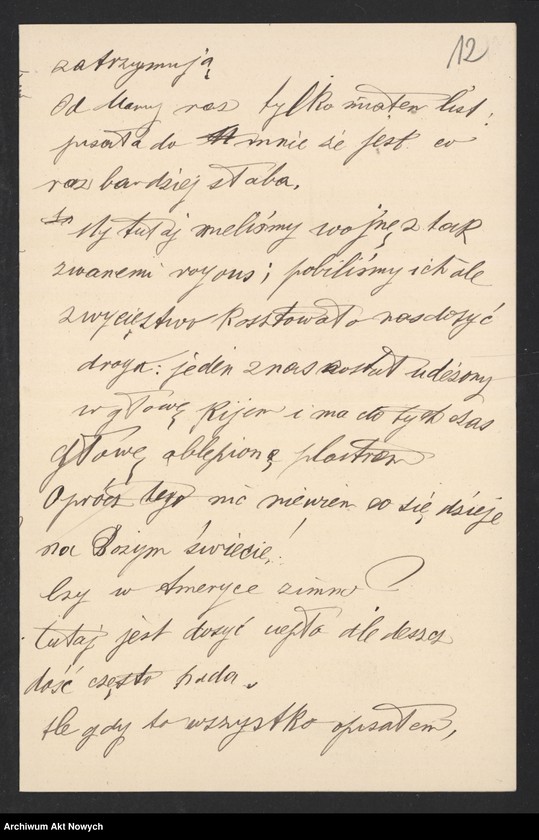 12
zatrzymują
Od Maruy raz tylko miałem list;
pisała do mnie że jest co
raz bardziej słaba.
My tutaj mieliśmy wojnę z tak
zwanemi voyous; pobiliśmy ich ale
zwycięstwo kosztowało nas dosyć
drogo: jeden z nas został udeżony
w głowę kijem i ma do tych czas
głowę oblepioną plastrem
Oprócz tego nic niewiem co się dzieje
na Bożym świecie!
Czy w Ameryce zimno?
tutaj jest dosyć ciepło ale deszcz
dość często pada.
Ale gdy to wszystko opisałem,
Archiwum Akt Nowych